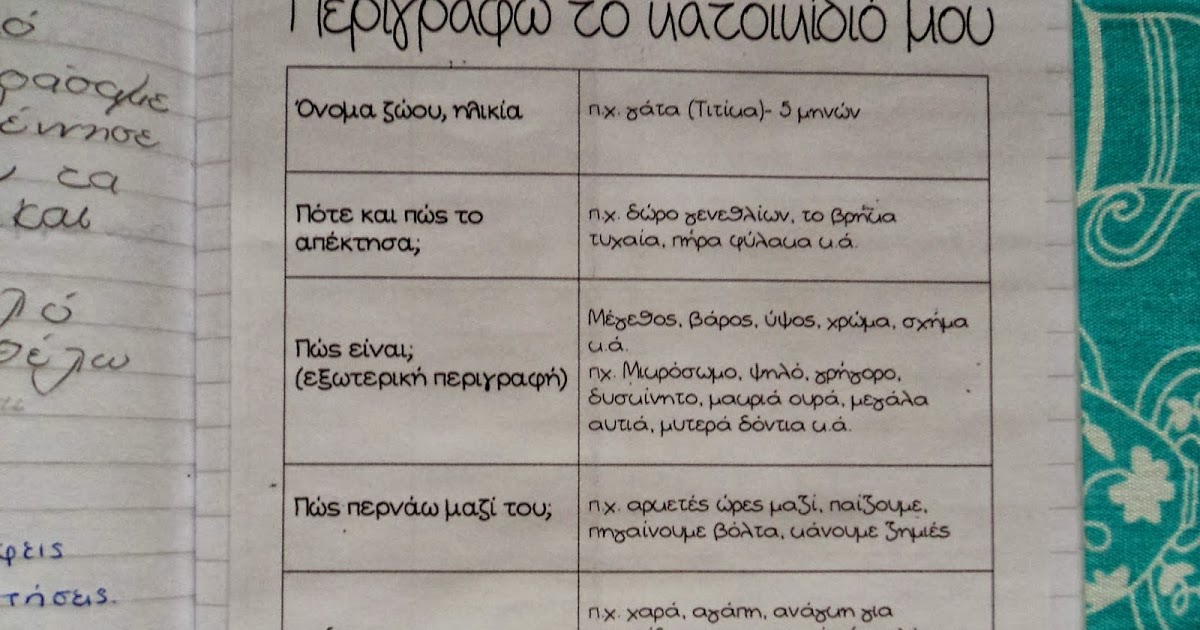 Περιγράφω το κατοικίδιό μου
Όνομα ζώου, ηλικία
π.χ. γάτα (Τιτίκα)- 5 μηνών
Πότε και πώς το
απέκτησα;
π.χ. δώρο γενεθλίων, το βρήκα
τυχαία, πήρα φύλακα κ.ά.
Πώς είναι;
(εξωτερική περιγραφή)
Μέγεθος, βάρος, ύψος, χρώμα, σχήμα
κ.ά.
πχ. Μικρόσωμο, ψηλό, γρήγορο,
δυσκίνητο, μακριά ουρά, μεγάλα
αυτιά, μυτερά δόντια κ.ά.
Πώς περνάω μαζί του;
π.χ. αρκετές ώρες μαζί, παίζουμε,
πηγαίνουμε βόλτα, κάνουμε ζημιές
π.χ. χαρά, αγάπη, ανάγκη για
ό
έννησε
τα
και
ό
θέλω